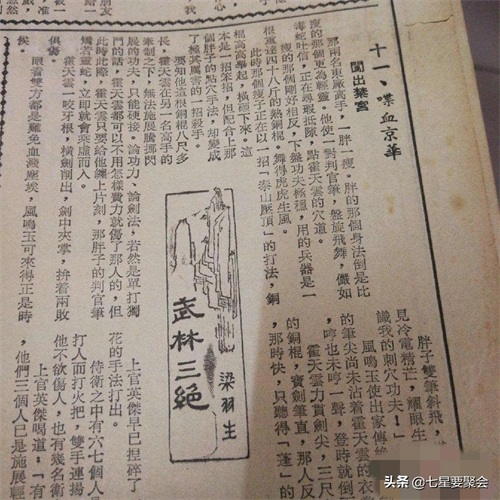 十一、喋血京華
闖出禁宮
那兩名東廠高手，一胖一瘦。胖的那個身法倒是比
瘦的那個更為輕靈。他使一對判官筆，盤旋飛舞，儼如
毒蛇吐信，正在尋瑕抵隙，點霍天雲的穴道。
瘦的那個剛好相反，下盤功夫極穩，用的兵器是一
根重達四十八斤的熟銅棍。舞得虎虎生風。
此時那個瘦子正在以一招「泰山壓頂」的打法，銅
棍高高舉起，橫掃下來。這
本是一招笨招，但配合上那
個胖子的點穴手法，却變成
了極其厲害的一招殺手。
要知他這根銅棍八尺多
長，霍天雲在另一名高手的
牽制之下，無法施展騰挪閃
展的功夫，只能硬接。論功力、論劍法，若然是單打獨
鬥的話，霍天雲都可以不用怎樣費力就傷了那人的，但
此時此際，霍天雲只要給他纏上片刻，那胖子的判官筆
矯若靈蛇，立即就會乘虛而入。
霍天雲一咬牙根，橫劍削出，劍中夾掌，拚着兩敗
俱傷。
眼看雙方都是難免血濺塵埃，風鳴玉可來得正是時
候，
武林三絕
梁羽生
胖子雙筆斜飛，
見冷電精芒，耀眼生
識我的刺穴功夫！」
風鳴玉使出家傳絶
的筆尖尚未沾着霍天雲的衣
，哼也未哼一聲，登時就倒
霍天雲力貫劍尖，三尺
的銅棍，寶劍筆直，那人反
，那時快，只聽得「蓬」的
上官英傑早已捏碎了
花的手法打出。
侍衛之中有六七個人
打人而打火把，雙手連揚
他不欲傷人，也有幾名衛
上官英傑喝道：「有
，他們三個人已是施展輕
头条 @七星要聚会